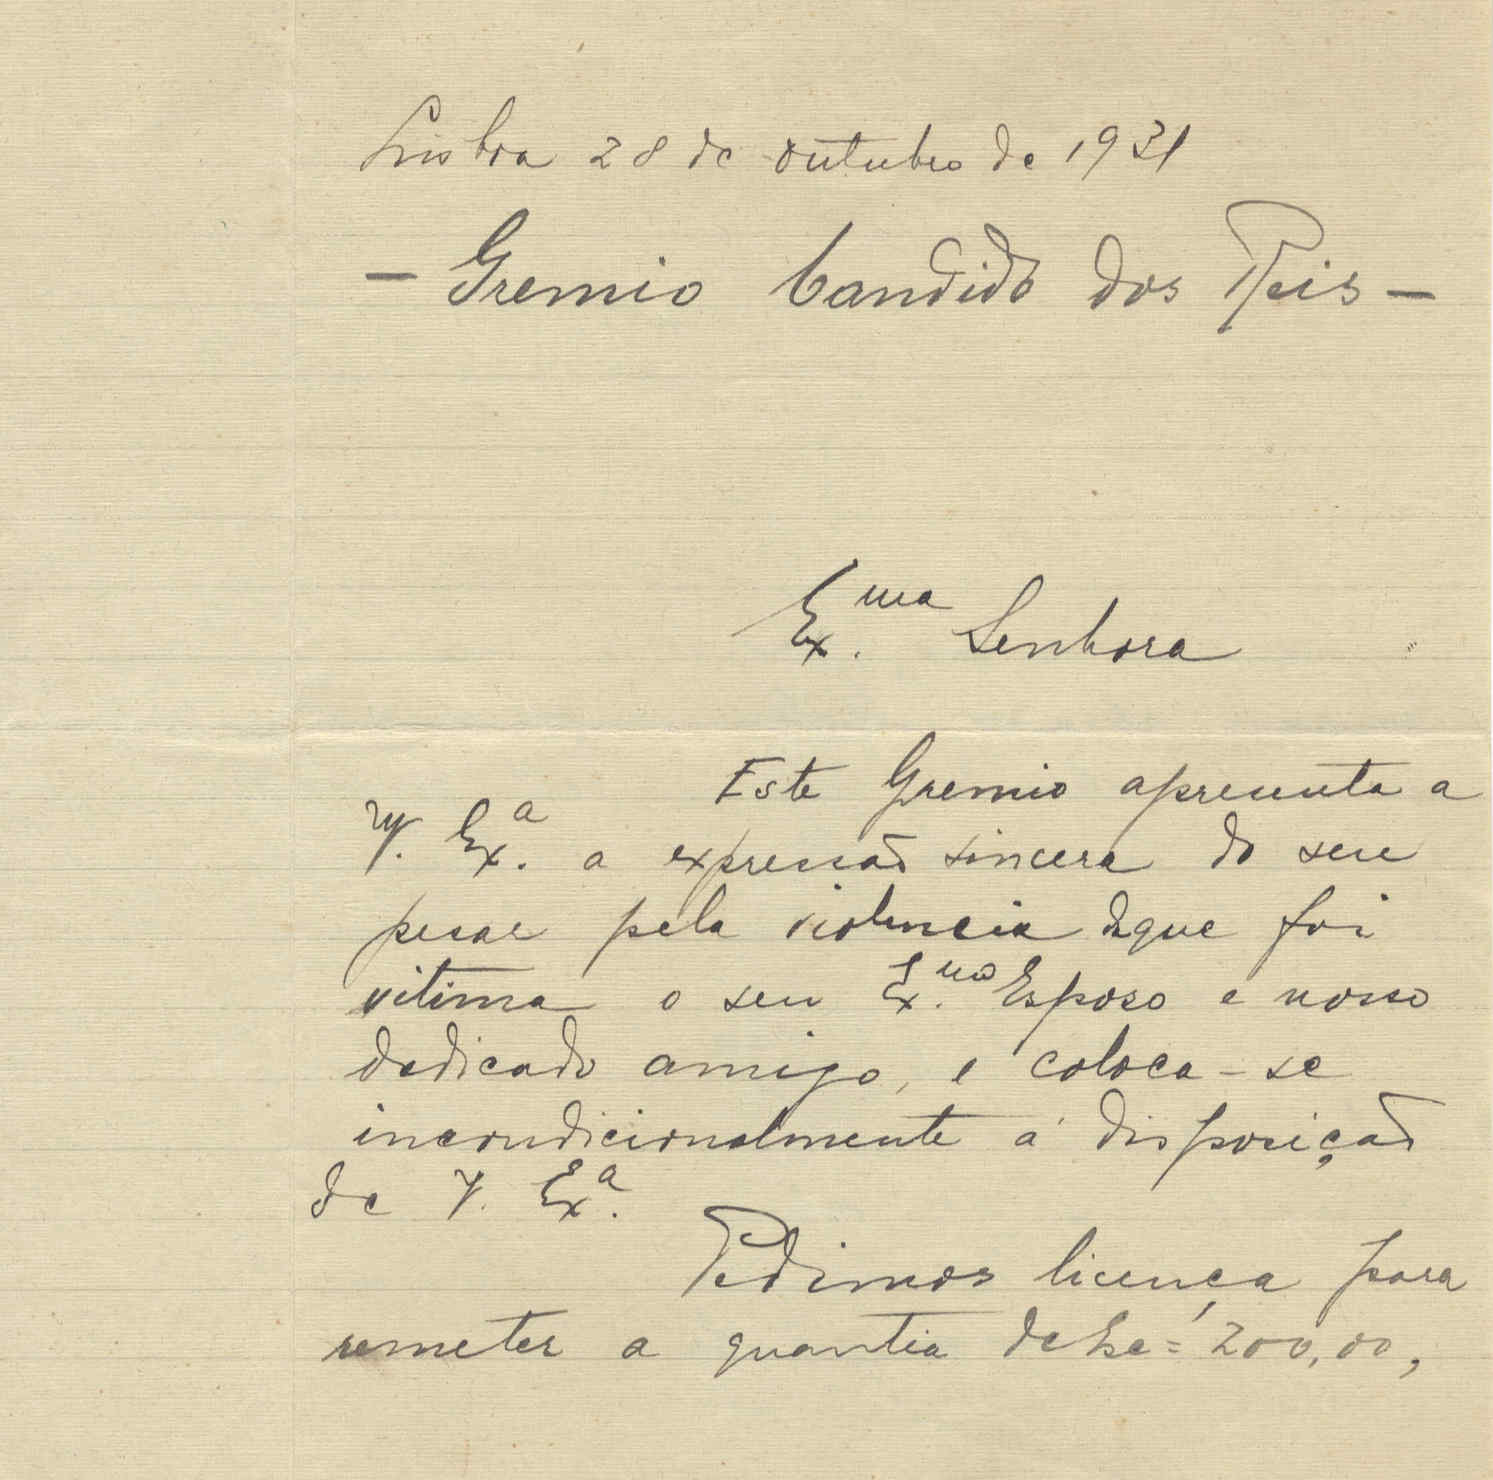 Lisboa 28 de outubro de 1931
- Gremio Candido dos Reis -
Ex.ma Senhora
Este Gremio apresenta a
V. Ex.a a expressão sincera do seu
pesar pela violencia deque foi
vitima o seu Ex.mo Esposo e nosso
dedicado amigo, e coloca-se
incondicionalmente á disposição
de V. Ex.a
Pedimos licença para
remeter a quantia de Esc= 200,00,